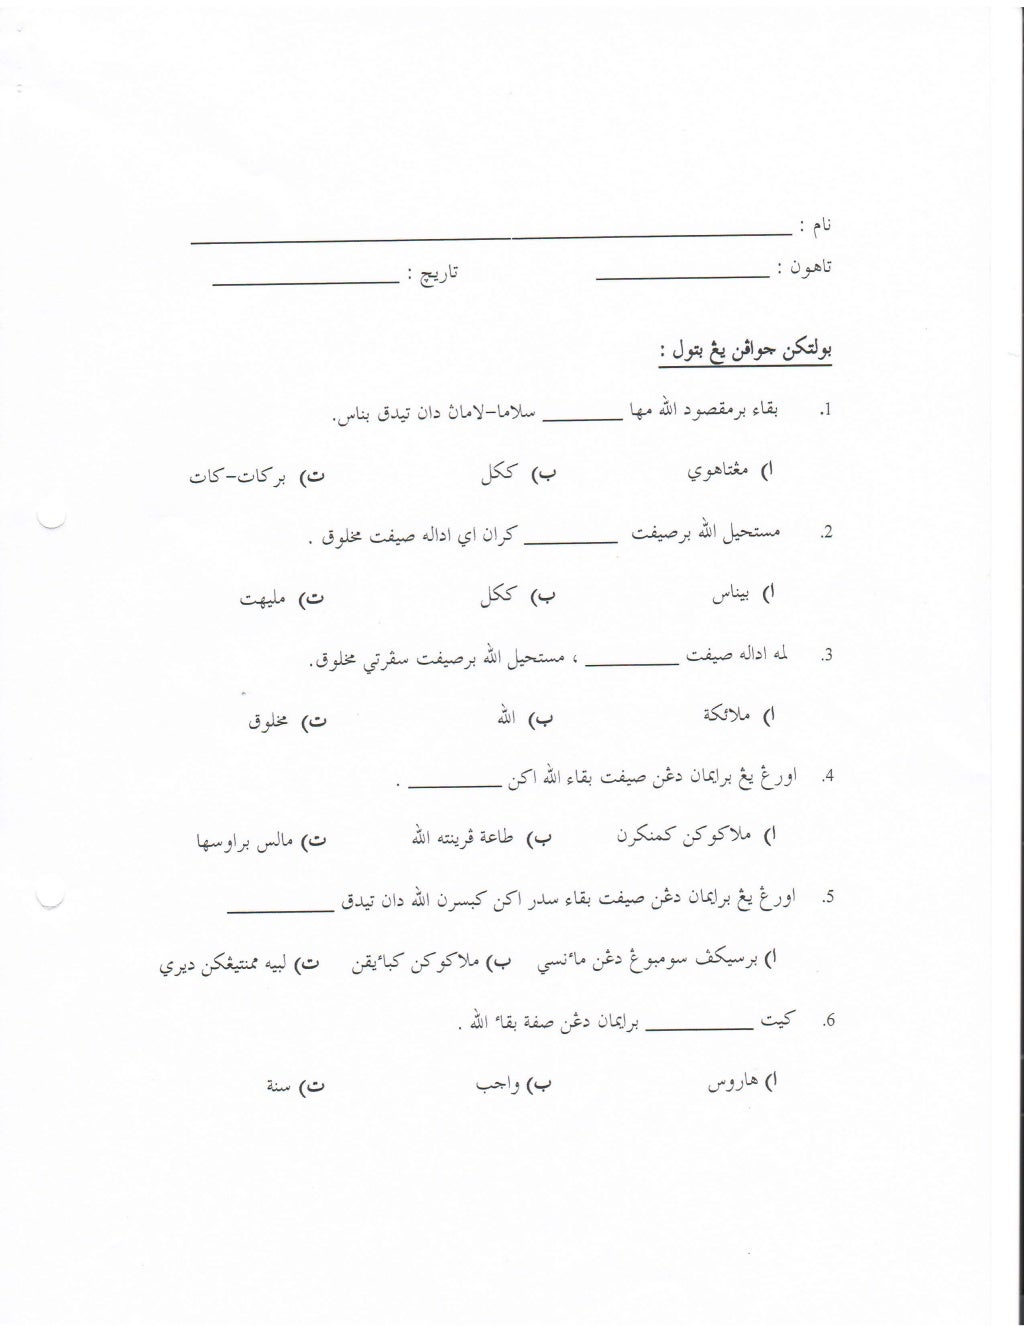 نام : ____________________
تاهون : __________ تاريخ : __________
بولتكن جواڤن يڠ بتول :
1. بقاء برمقصود الله مها ________ سلاما-لامان دان تيدق بناس.
ا) مڠتاهوي ب) ككل ت) بركات-كات
2. مستحيل الله برصيفت ________ كران اي اداله صيفت مخلوق .
ا) بيناس ب) ككل ت) مليهت
3. لمه اداله صيفت ________ ، مستحيل الله برصيفت سڤرتي مخلوق.
ا) ملائكة ب) الله ت) مخلوق
4. اورڠ يڠ برايمان دڠن صيفت بقاء الله اكن ________ .
ا) ملاكوكن كمنكرن ب) طاعة ڤرينته الله ت) مالس براوسها
5. اورڠ يڠ برايمان دڠن صيفت بقاء سدر اكن كبسرن الله دان تيدق ________
ا) برسيكڤ سومبوڠ دڠن مأنسي ب) ملاكوكن كبأيقن ت) لبيه ممنتيڠكن ديري
6. كيت ________ برايمان دڠن صفة بقاء الله .
ا) هاروس ب) واجب ت) سنة